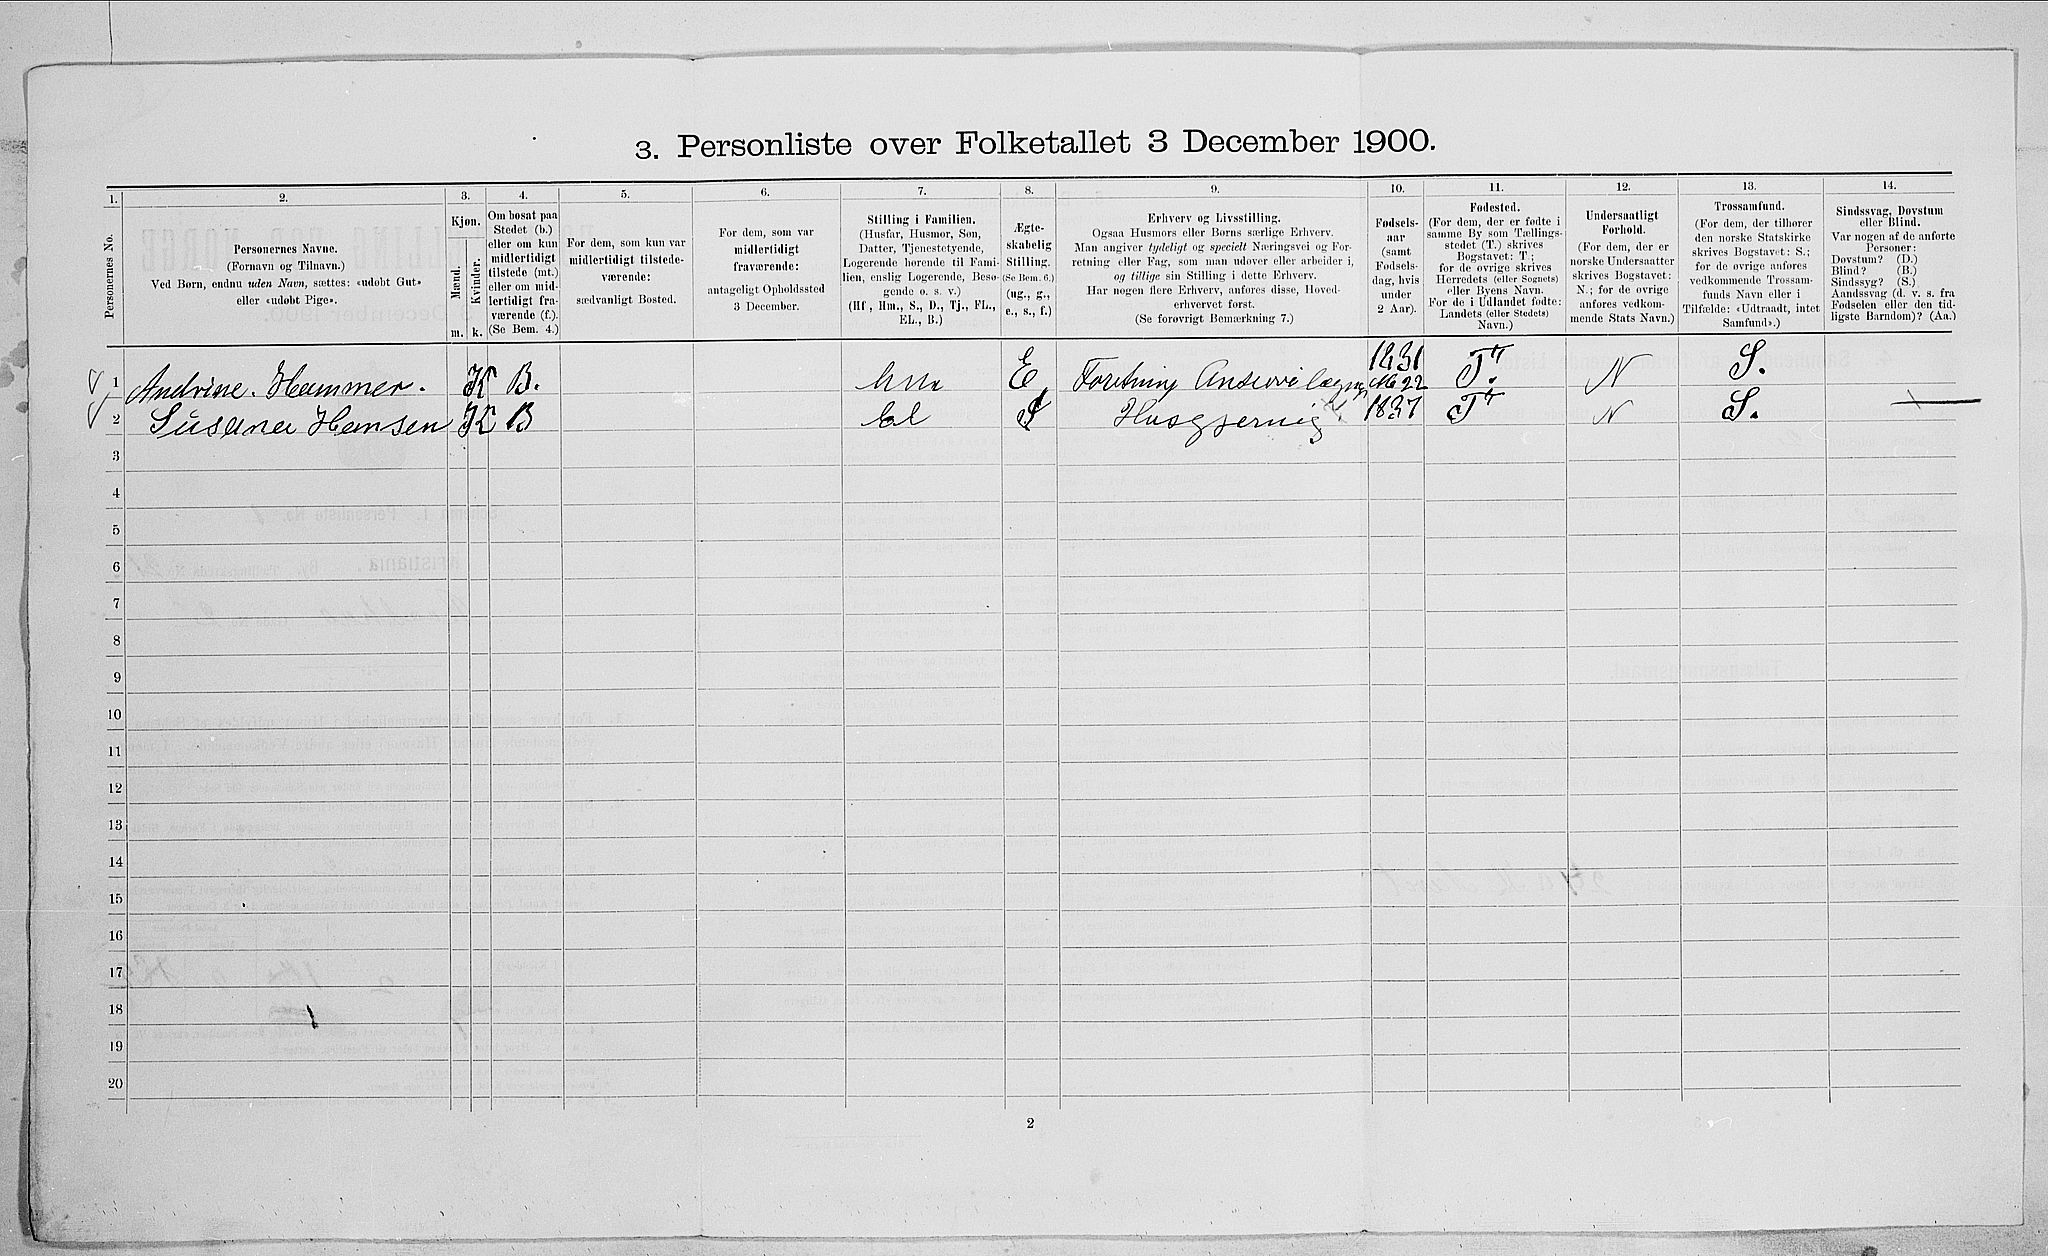 3. Personliste over Folketallet 3 December 1900.
1. 2. 3. 4. 5. 6. 7. 8. 9. 10. 11. 12. 13. 14.
Personernes No.
Personernes Navne.
(Fornavn og Tilnavn.)
Ved Børn, endnu uden Navn, sættes: «udøbt Gut»
eller «udøbt Pige».
Kjøn.
Mænd. Kvinder.
m. k.
Om bosat paa
Stedet (b.)
eller om kun
midlertidigt
tilstede (mt.)
eller om mid-
lertidigt fra-
værende (f.).
(Se Bem. 4.)
For dem, som kun var
midlertidigt tilstede-
værende:
sædvanligt Bosted.
For dem, som var
midlertidigt
fraværende:
antageligt Opholdssted
3 December.
Stilling i Familien.
(Husfar, Husmor, Søn,
Datter, Tjenestetyende,
Logerende hørende til Fami-
lien, enslig Logerende, Besø-
gende o. s. v.)
(Hf., Hm., S., D., Tj., FL.,
EL., B.)
Ægte-
skabelig
Stilling.
(Se Bem. 6.)
(ug., g.,
e., s., f.)
Erhverv og Livsstilling.
Ogsaa Husmors eller Børns særlige Erhverv.
Man angiver tydeligt og specielt Næringsvei og For-
retning eller Fag, som man udøver eller arbeider i,
og tillige sin Stilling i dette Erhverv.
Har nogen flere Erhverv, anføres disse, Hoved-
erhvervet først.
(Se forøvrigt Bemærkning 7.)
Fødsels-
aar
(samt
Fødsels-
dag, hvis
under
2 Aar).
Fødested.
(For dem, der er fødte i
samme By som Tællings-
stedet (T.) skrives
Bogstavet: T;
for de øvrige skrives
Herredets (eller Sognets)
eller Byens Navn.
For de i Udlandet fødte:
Landets (eller Stedets)
Navn.)
Undersaatligt
Forhold.
(For dem, der er
norske Undersaatter
skrives Bogstavet:
N.; for de øvrige
anføres vedkom-
mende Stats Navn.)
Trossamfund.
(For dem, der tilhører
den norske Statskirke
skrives Bogstavet: S.;
for de øvrige anføres
vedkommende Trossam-
funds Navn eller i
Tilfælde: «Udtraadt, intet
Samfund».)
Sindssvag, Døvstum
eller Blind.
Var nogen af de anførte
Personer:
Døvstum? (D.)
Blind? (B.)
Sindssyg? (S.)
Aandssvag (d. v. s. fra
Fødselen eller den tid-
ligste Barndom)? (Aa.)
1 Andrine. Hammer. K B. hm E Foretning 1831 T. N S.
2 Susana Hansen K B el Husgjerning 1837 T N S.
3
4
5
6
7
8
9
10
11
12
13
14
15
16
17
18
19
20
2